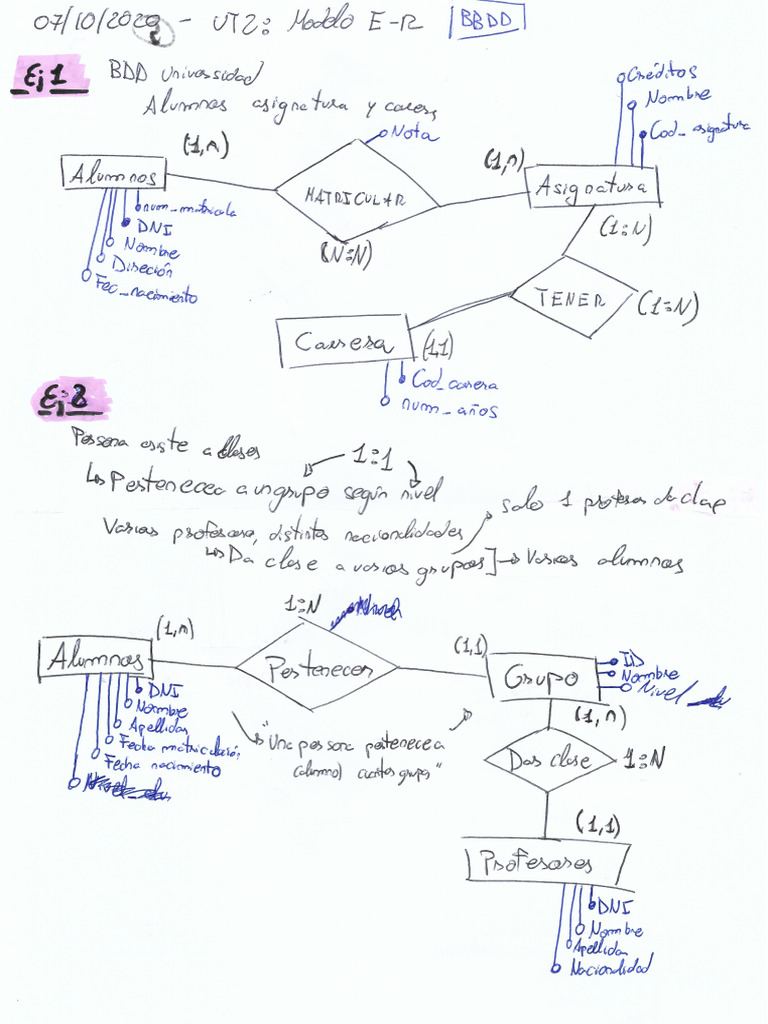 07/10/2020 - UT2: Modelo E-R BBDD
Ej 1 BDD Universidad
Alumnos asignatura y carrera
Créditos
Nombre
Cod_asignatura
Nota
(1,n)
(1,n)
Alumnos
MATRICULAR
Asignatura
num_matricula
DNI
Nombre
Direción
Fec_nacimiento
(N:N)
(1:N)
TENER
(1:N)
Carrera
(1,1)
Cod_carera
num_años
Ej:2
Persona asiste a clases
1:1
Pertenece a un grupo según nivel
Varios profesores, distintas nacionalidades
solo 1 profesor da clase
Da clase a varios grupos] → Varios alumnos
1:N
(1,n)
(1,1)
Alumnos
Pertenecer
Grupo
ID
Nombre
Nivel
DNI
Nombre
Apellidos
Fecha matriculación
Fecha nacimiento
"Una persona pertenece a
(alumno)
grupos"
(1,n)
Dar clase
1:N
(1,1)
Profesores
DNI
Nombre
Apellidos
Nacionalidad